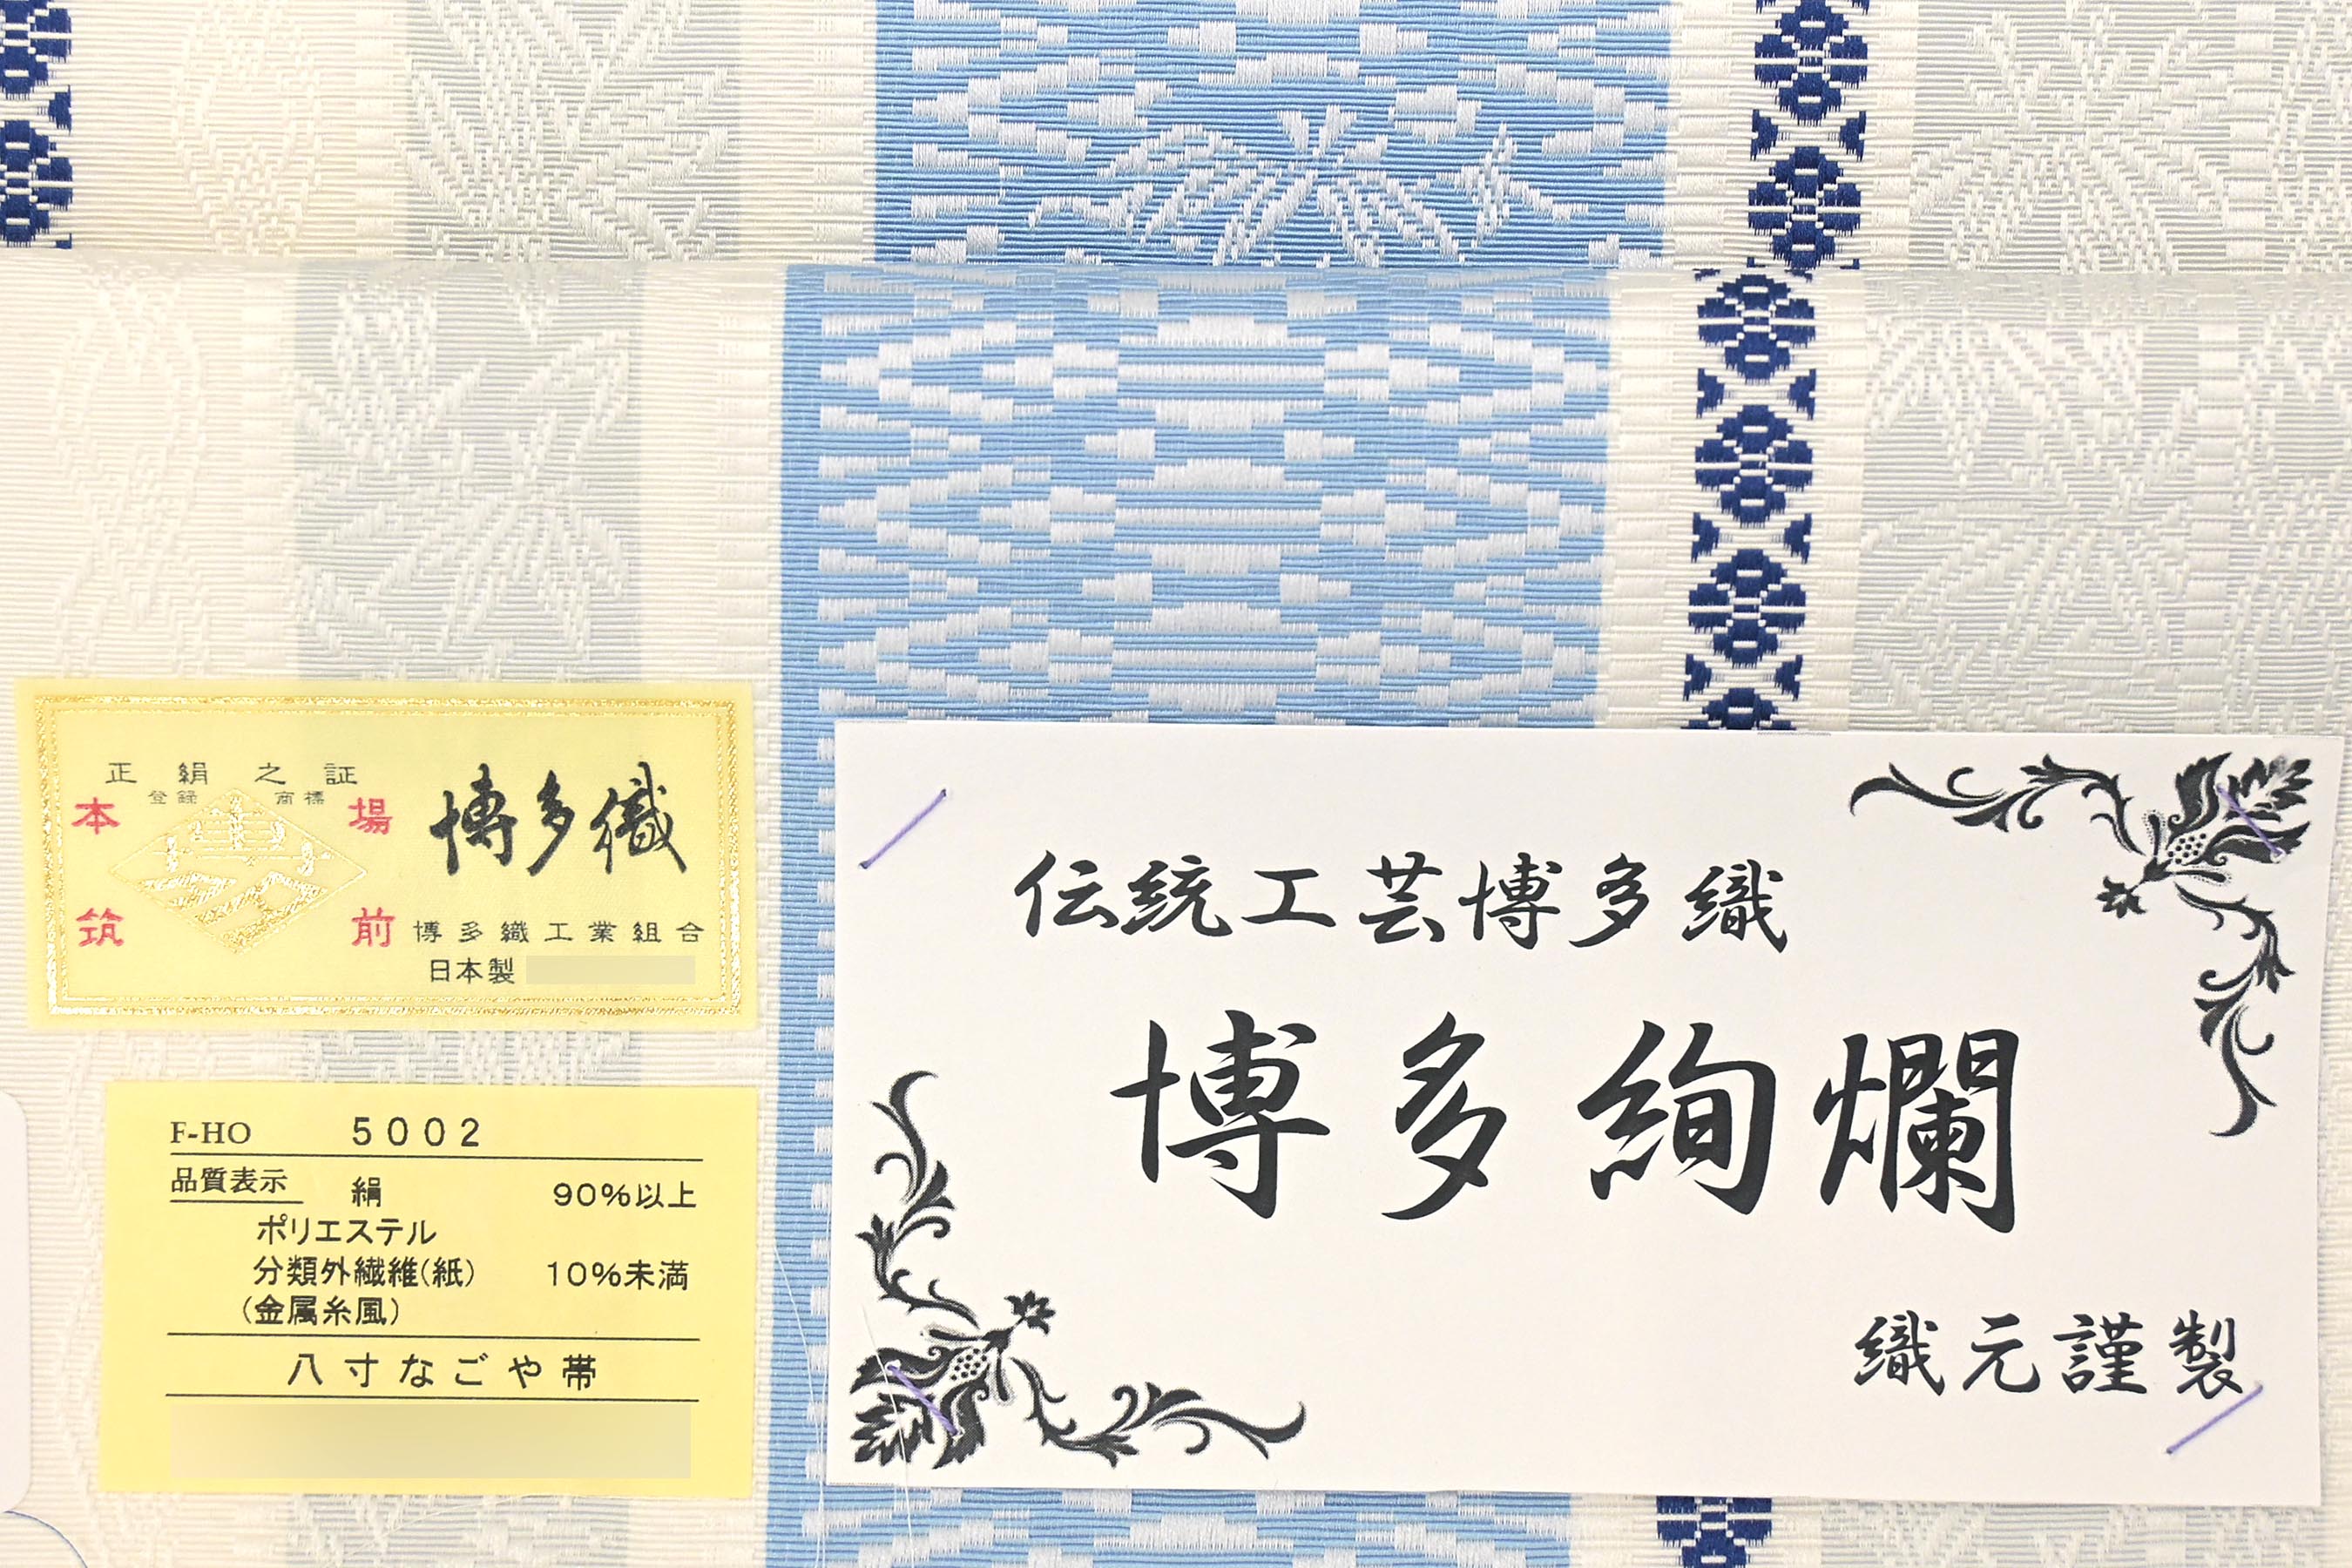 正絹之証
登録 商標
本場
筑前
博多織
博多織工業組合
日本製
F-HO 5002
品質表示 絹 90%以上
ポリエステル
分類外繊維(紙) 10%未満
(金属糸風)
八寸なごや帯
伝統工芸博多織
博多絢爛
織元謹製